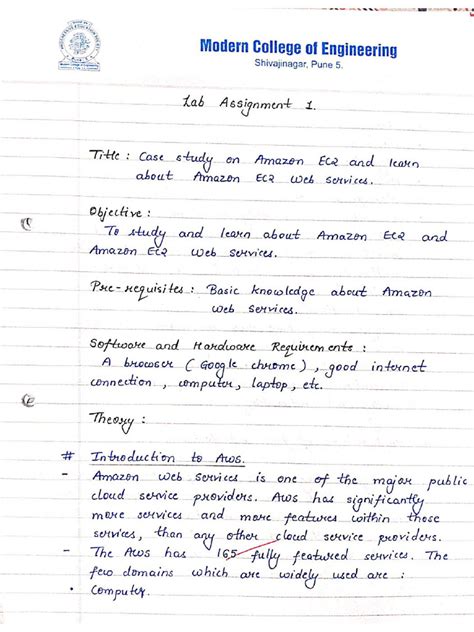 Modern College of Engineering
Shivajinagar, Pune 5.
Lab Assignment 1.
Title : Case study on Amazon EC2 and learn
about Amazon EC2 web services.
Objective :
To study and learn about Amazon EC2 and
Amazon EC2 web services.
Pre-requisites : Basic knowledge about Amazon
web services.
Software and Hardware Requirements :
A browser ( Google chrome ) , good internet
connection , computer , laptop , etc.
Theory :
# Introduction to AWS.
- Amazon web services is one of the major public
cloud service providers. AWS has significantly
more services and more features within those
services, than any other cloud service providers.
- The AWS has 165 fully featured services. The
few domains which are widely used are :
• Computer.